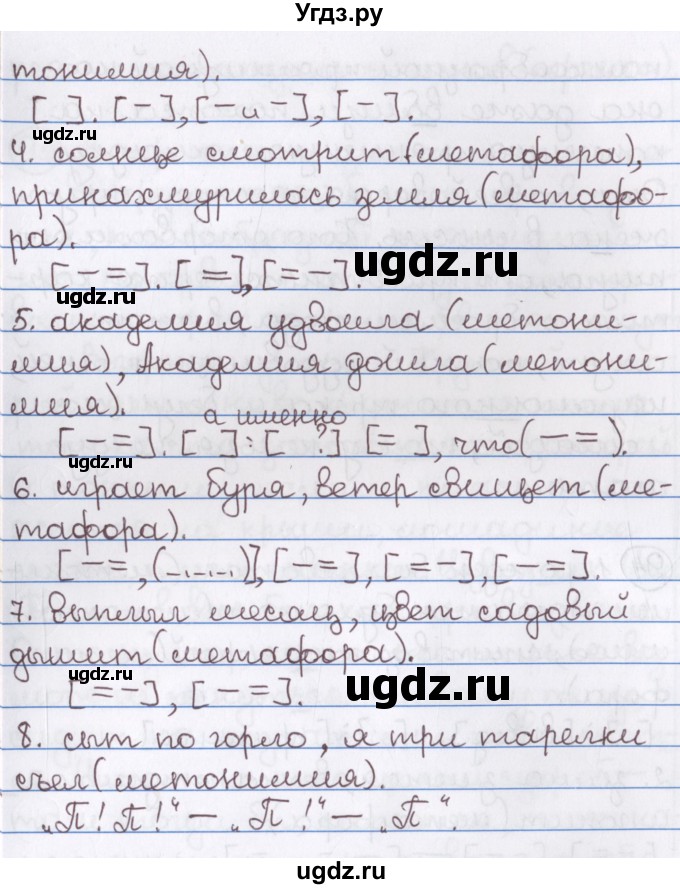 Угдз.ру
тонимия).
[ ]. [ = ], [ – и – ], [ = ].
ugdz.ru
4. солнце смотрит (метафора),
принахмурилась земля (метафо-
ра).
[ – = ]. [ – = ], [ = – ].
ugdz.ru
ugdz.ru
5. академия удвоила (метони-
мия), Академия дошла (метони-
мия).
а именно
[ – = ]. [ – = ] : [ – = ]. [ = – ], что ( – = ).
ugdz.ru
6. играет буря, ветер свищет (ме-
тафора).
[ – =, (........) ], [ – = ], [ = – ], [ – = ].
ugdz.ru
7. выплыл месяц, цвет садовый
дышит (метафора).
[ = – ], [ – = ].
ugdz.ru
ugdz.ru
8. сыт по горло, я три тарелки
съел (метонимия).
„П! П!“ – „П!“ – „П“.
ugdz.ru
ugdz.ru